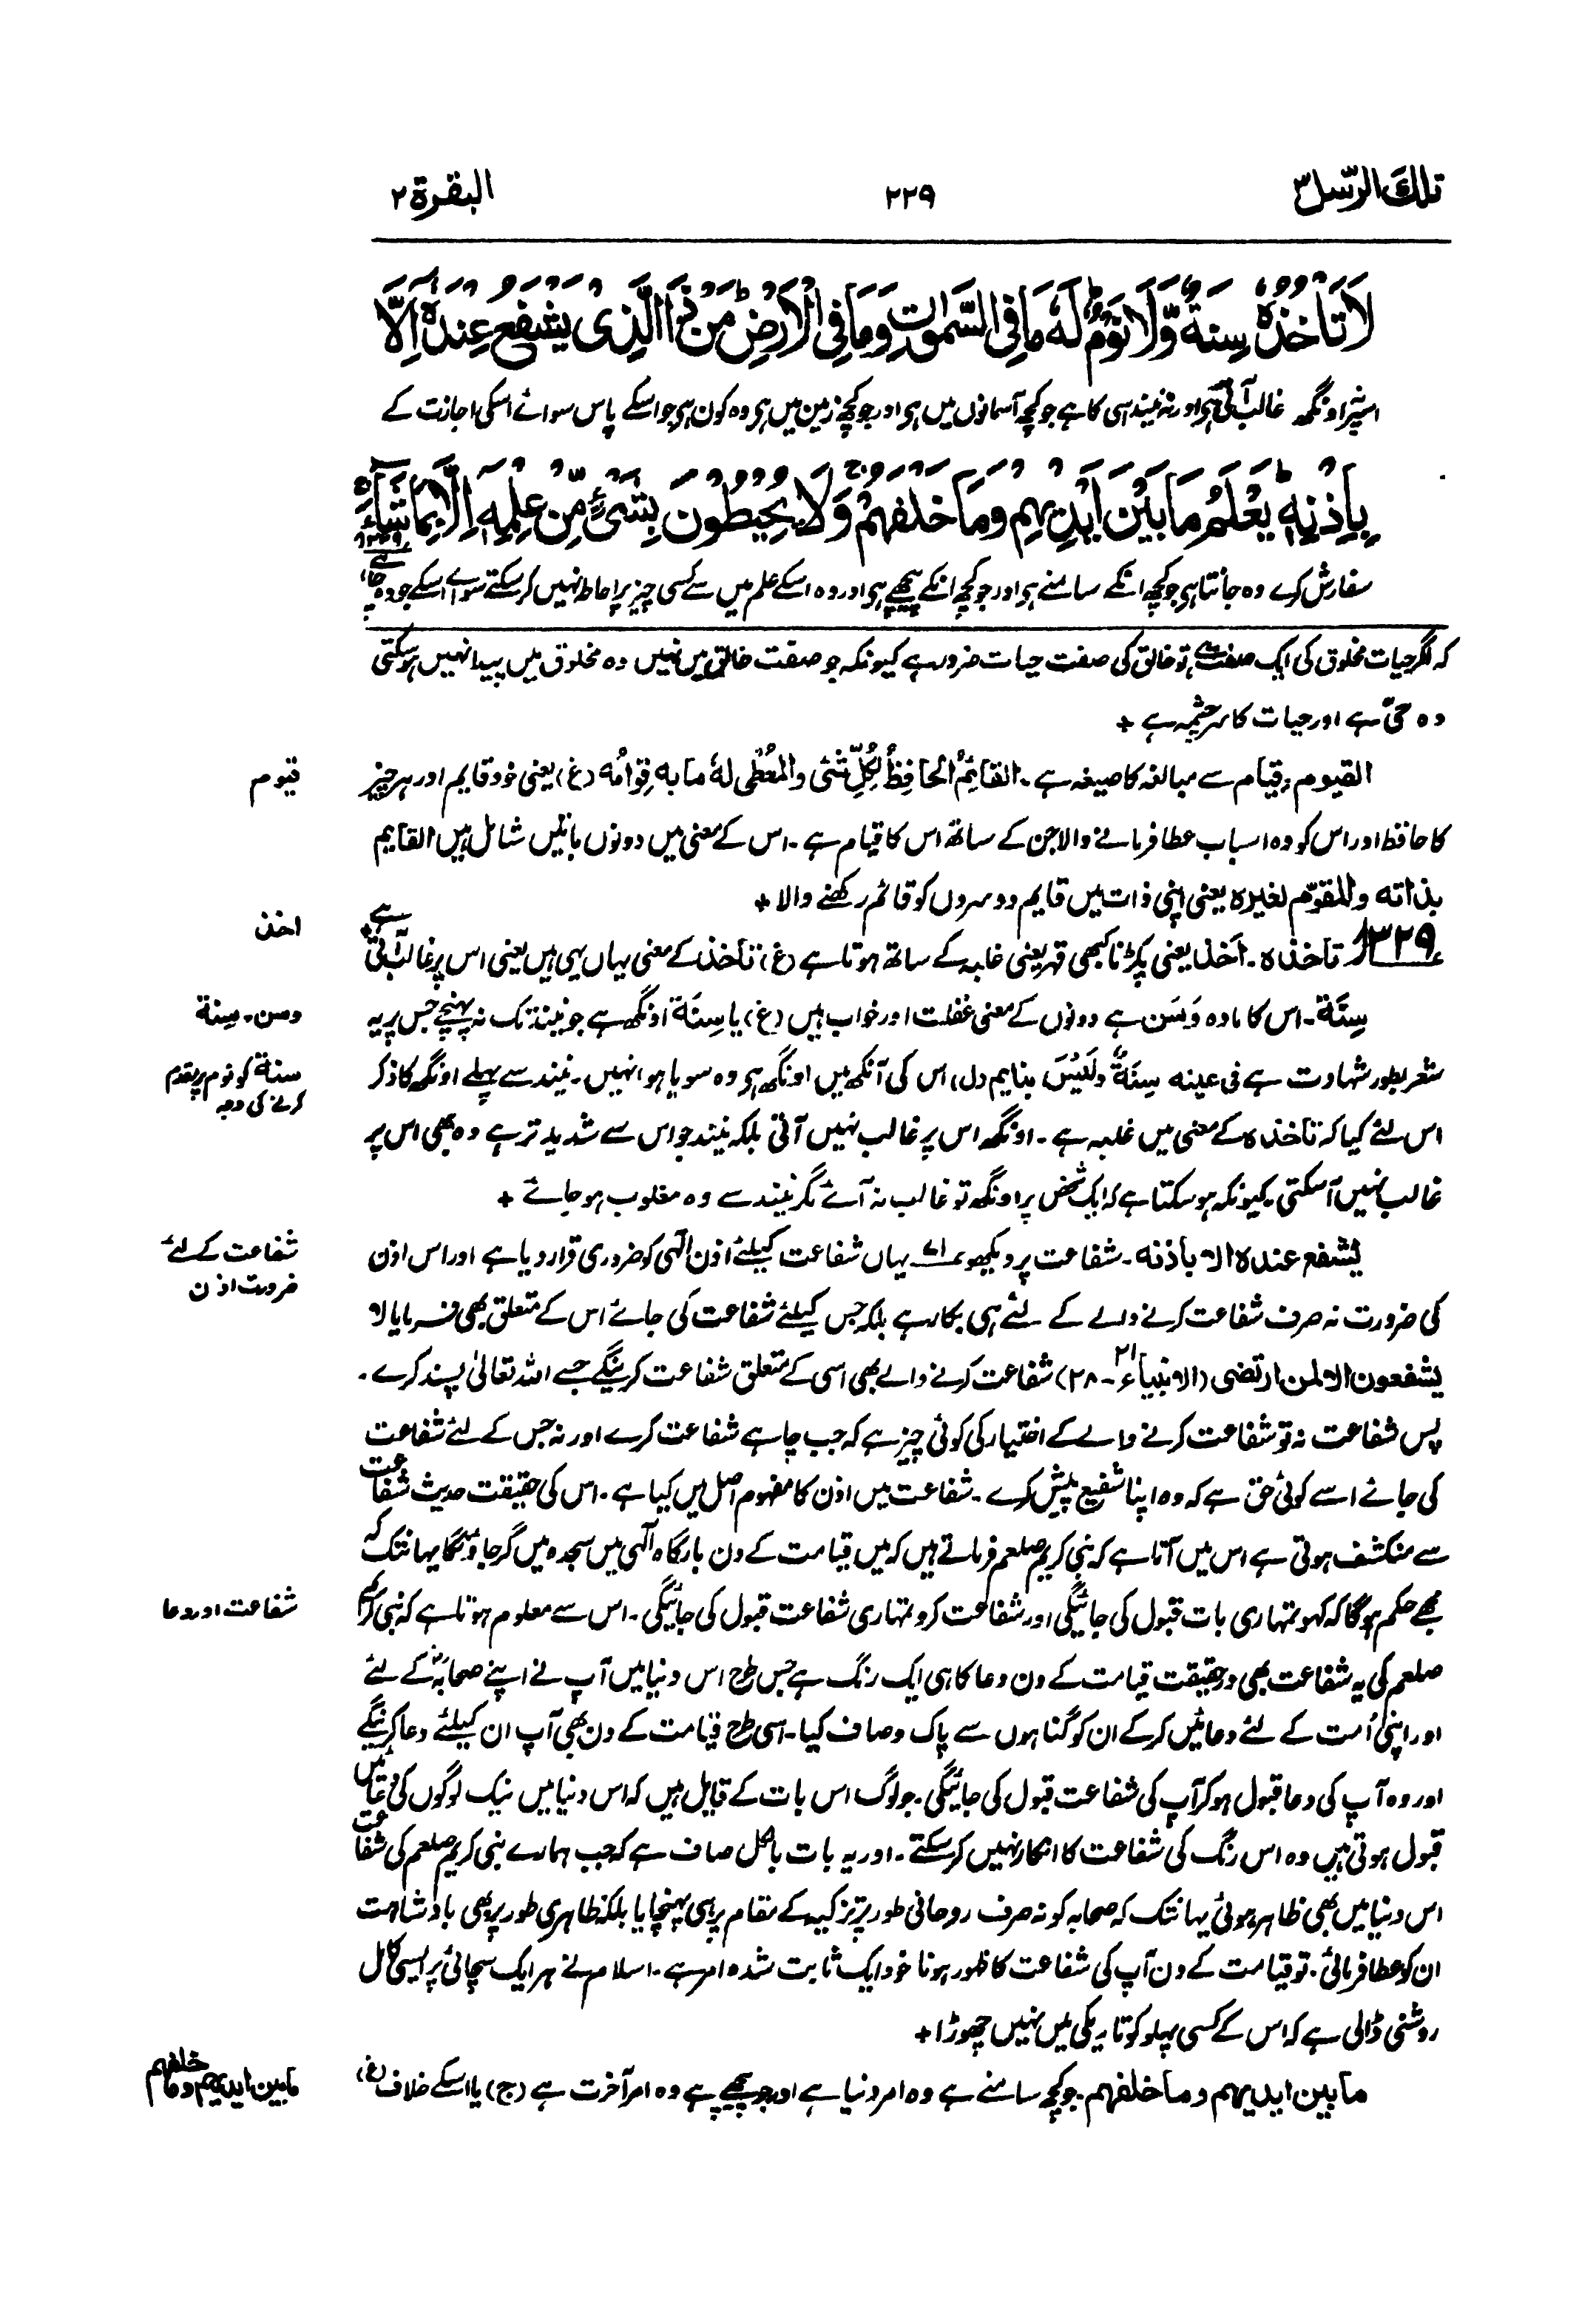 تلك الرسل ٣
٢٢٩
البقرة ٢
لَا تَاْخُذُهٗ سِنَةٌ وَّلَا نَوْمٌ ؕ لَهٗ مَا فِی السَّمٰوٰتِ وَمَا فِی الْاَرْضِ ؕ مَنْ ذَا الَّذِیْ یَشْفَعُ عِنْدَهٗٓ اِلَّا
اسپر اونگھ غالب آتی ہی اور نہ نیند اسی کا ہے جو کچھ آسمانوں میں ہی اور جو کچھ زمین میں ہی وہ کون ہی جو اسکے پاس سوائے اسکی اجازت کے
بِاِذْنِهٖ ؕ یَعْلَمُ مَا بَیْنَ اَیْدِیْهِمْ وَمَا خَلْفَهُمْ ۚ وَلَا یُحِیْطُوْنَ بِشَیْءٍ مِّنْ عِلْمِهٖٓ اِلَّا بِمَا شَآءَ ۚ
سفارش کرے وہ جانتا ہی جو کچھ انکے سامنے ہی اور جو کچھ انکے پیچھے ہی اور وہ اسکے علم میں سے کسی چیز پر احاطہ نہیں کر سکتے سوائے اسکے جو وہ چاہے
کہ اگر حیات مخلوق کی ایک صفت ہے تو خالق کی صفت حیات ضرور ہے کیونکہ جو صفت خالق میں نہیں وہ مخلوق میں پیدا نہیں ہو سکتی
وہ حیّ ہے اور حیات کا سرچشمہ ہے +
قیوم
القیوم۔ قیام سے مبالغہ کا صیغہ ہے۔ القائِمُ الحافِظُ لِکُلِّ شئ والمُعْطی لهٗ ما به قِوامُه (غ) یعنی خود قایم اور ہر چیز
کا حافظ اور اس کو وہ اسباب عطا فرمانے والا جن کے ساتھ اس کا قیام ہے۔ اس کے معنی میں دونوں باتیں شامل ہیں القایم
بذاته والمقوّم لغیره یعنی اپنی ذات میں قایم دوسروں کو قائم رکھنے والا +
اخذ
۳۲۹ تاخذہ۔ اَخذ یعنی پکڑنا کبھی قہر یعنی غلبہ کے ساتھ ہوتا ہے (غ) تاخذ کے معنی یہاں یہی ہیں یعنی اس پر غالب آتی ہے+
وسن۔ سِنة
سِنَة۔ اس کا مادہ وَسَن ہے دونوں کے معنی غفلت اور خواب ہیں (غ) یا سِنَة اونگھ ہے جو نیند تک نہ پہنچے جس پر یہ
سنة کو نوم پر مقدم
کرنے کی وجہ
شعر بطور شہادت ہے فی عینه سِنَةٌ ولَیْسَ بنایم (ل) اس کی آنکھ میں اونگھ ہی وہ سویا ہوا نہیں۔ نیند سے پہلے اونگھ کا ذکر
اس لئے کیا کہ تاخذہ کے معنی میں غلبہ ہے۔ اونگھ اس پر غالب نہیں آتی بلکہ نیند جو اس سے شدید تر ہے وہ بھی اس پر
غالب نہیں آسکتی۔ کیونکہ ہو سکتا ہے کہ ایک شخص پر اونگھ تو غالب نہ آئے مگر نیند سے وہ مغلوب ہو جائے +
شفاعت کے لئے
ضرورت اذن
یشفع عندہ الا باذنه۔ شفاعت پر دیکھو یہاں شفاعت کیلئے اذن الٰہی کو ضروری قرار دیا ہے اور اس اذن
کی ضرورت نہ صرف شفاعت کرنے والے کے لئے ہی بکار ہے بلکہ جس کیلئے شفاعت کی جائے اس کے متعلق بھی فرمایا لا
یشفعون الا لمن ارتضی (الانبیاء ۲۱-۲۸) شفاعت کرنے والے بھی اسی کے متعلق شفاعت کرینگے جسے اللہ تعالیٰ پسند کرے۔
پس شفاعت نہ تو شفاعت کرنے والے کے اختیار کی کوئی چیز ہے کہ جب چاہے شفاعت کرے اور نہ جس کے لئے شفاعت
کی جائے اسے کوئی حق ہے کہ وہ اپنا شفیع پیش کرے۔ شفاعت میں اذن کا مفہوم اصل میں کیا ہے۔ اس کی حقیقت حدیث شفاعت
سے منکشف ہوتی ہے اس میں آتا ہے کہ نبی کریم صلعم فرماتے ہیں کہ میں قیامت کے دن بارگاہ الٰہی میں سجدہ میں گر جاؤنگا یہانتک کہ
شفاعت اور دعا
مجھے حکم ہوگا کہ کہو تمہاری بات قبول کی جائیگی اور شفاعت کرو تمہاری شفاعت قبول کی جائیگی۔ اس سے معلوم ہوتا ہے کہ نبی کریم
صلعم کی یہ شفاعت بھی درحقیقت قیامت کے دن دعا کا ہی ایک رنگ ہے جس طرح اس دنیا میں آپ نے اپنے صحابہؓ کے لئے
اور اپنی اُمت کے لئے دعائیں کرکے ان کو گناہوں سے پاک وصاف کیا۔ اسی طرح قیامت کے دن بھی آپ ان کیلئے دعا کرینگے
اور وہ آپ کی دعا قبول ہو کر آپ کی شفاعت قبول کی جائیگی۔ جو لوگ اس بات کے قایل ہیں کہ اس دنیا میں نیک لوگوں کی دعائیں
قبول ہوتی ہیں وہ اس رنگ کی شفاعت کا انکار نہیں کر سکتے۔ اور یہ بات بالکل صاف ہے کہ جب ہمارے نبی کریم صلعم کی شفاعت
اس دنیا میں بھی ظاہر ہوئی یہانتک کہ صحابہ کو نہ صرف روحانی طور پر تزکیہ کے مقام پر ہی پہنچایا بلکہ ظاہری طور پر بھی بادشاہت
ان کو عطا فرمائی۔ تو قیامت کے دن آپ کی شفاعت کا ظہور ہونا خود ایک ثابت شدہ امر ہے۔ اسلام نے ہر ایک سچائی پر ایسی کامل
روشنی ڈالی ہے کہ اس کے کسی پہلو کو تاریکی میں نہیں چھوڑا +
مابین ایدیهم وما خلفهم
مابین ایدیهم وما خلفهم۔ جو کچھ سامنے ہے وہ امر دنیا ہے اور جو پیچھے ہے وہ امر آخرت ہے (ج) یا اسکے خلاف (غ)